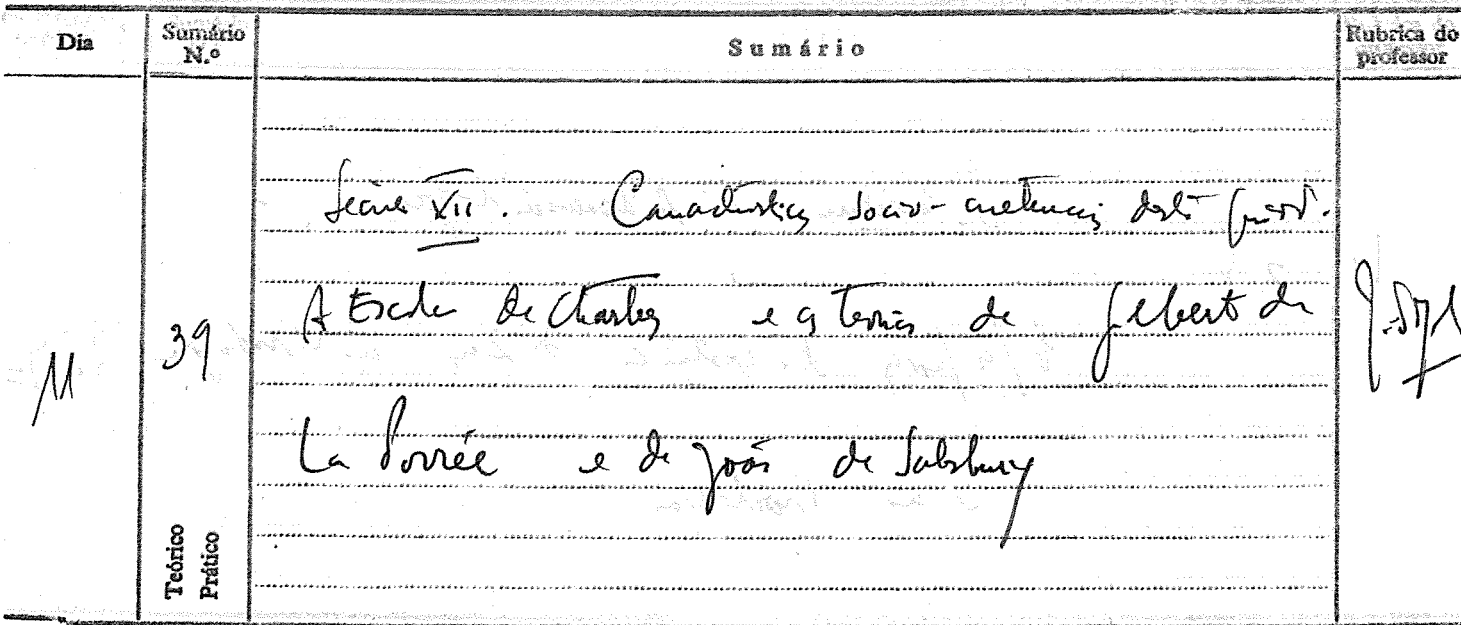 Dia
Sumário N.º
Sumário
Rubrica do professor
11
39
Teórico
Prático
Século XII. Características socio-culturais deste períod.
A Escola de Chartres e as teorias de Gilbert de
La Porrée e de João de Salisbury